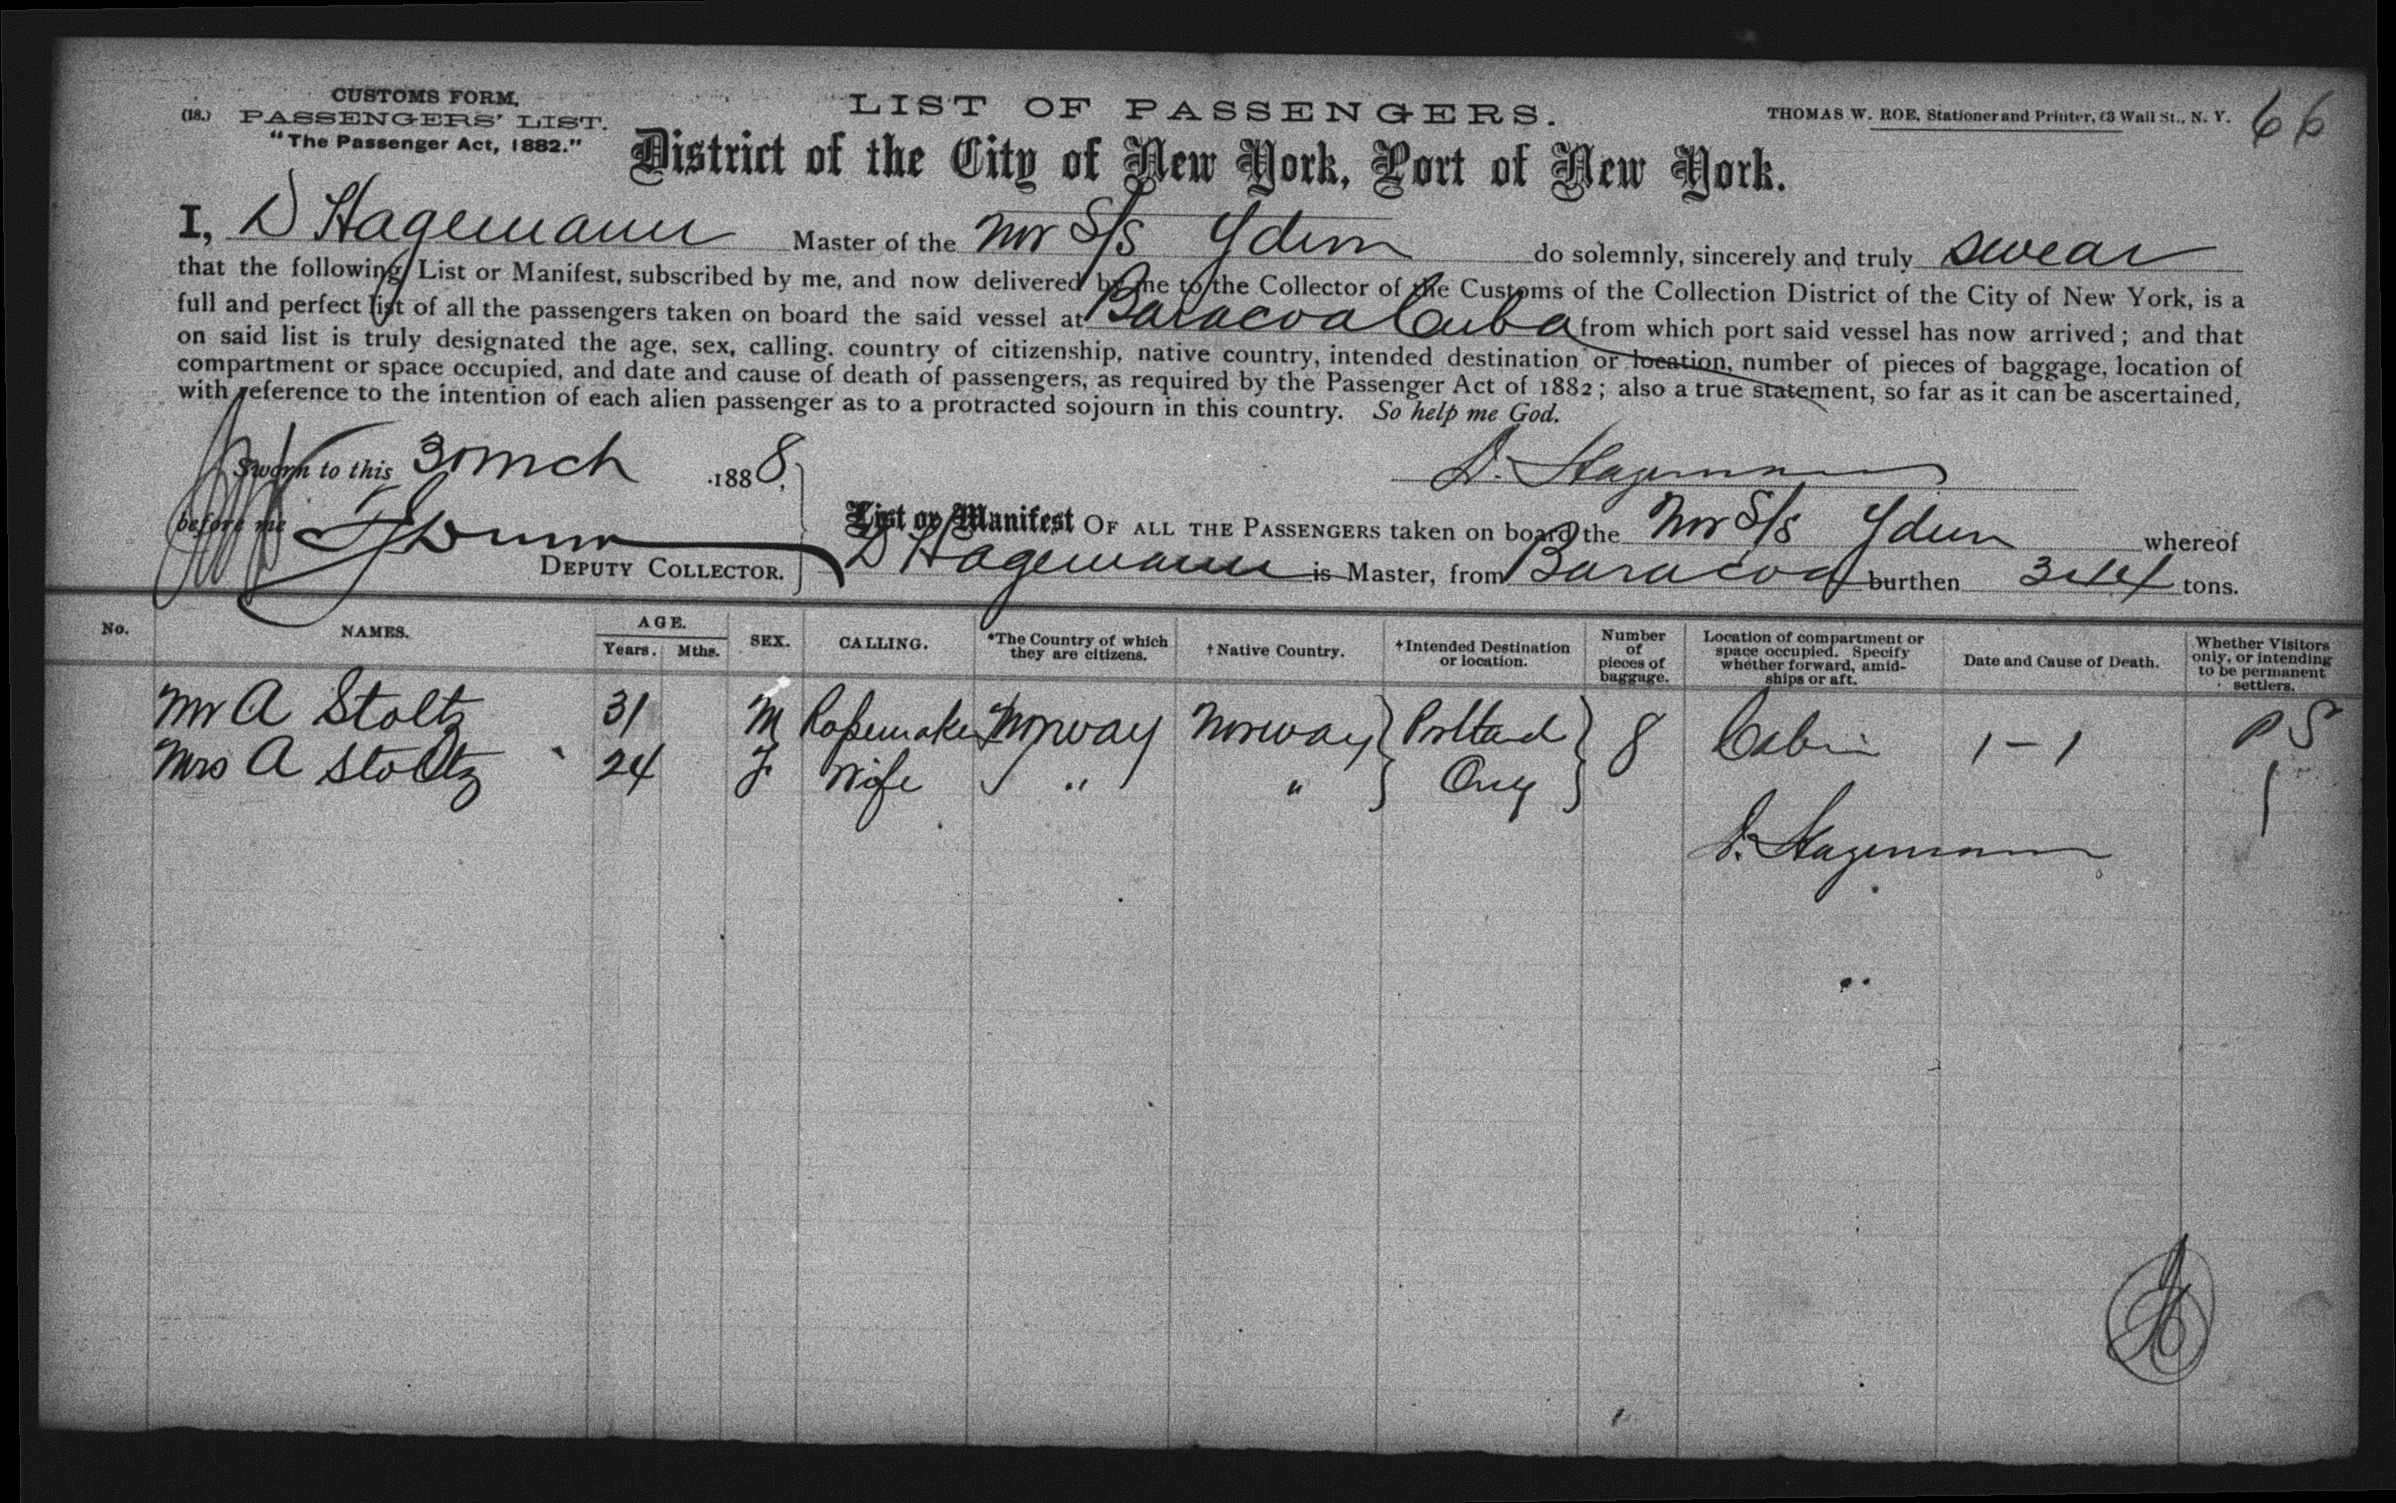 CUSTOMS FORM,
(18.) PASSENGERS' LIST.
"The Passenger Act, 1882."
LIST OF PASSENGERS.
THOMAS W. ROE, Stationer and Printer, 63 Wall St., N. Y.
66
District of the City of New York, Port of New York.
I, D Hagemann Master of the Nor S/S Ydun do solemnly, sincerely and truly swear
that the following List or Manifest, subscribed by me, and now delivered by me to the Collector of the Customs of the Collection District of the City of New York, is a
full and perfect list of all the passengers taken on board the said vessel at Baracoa Cuba from which port said vessel has now arrived; and that
on said list is truly designated the age, sex, calling, country of citizenship, native country, intended destination or location, number of pieces of baggage, location of
compartment or space occupied, and date and cause of death of passengers, as required by the Passenger Act of 1882; also a true statement, so far as it can be ascertained,
with reference to the intention of each alien passenger as to a protracted sojourn in this country. So help me God.
Sworn to this 30 Mch 1888,
D. Hagemann
before me
DEPUTY COLLECTOR.
List or Manifest OF ALL THE PASSENGERS taken on board the Nor S/S Ydun whereof
D Hagemann is Master, from Baracoa burthen tons.
No. NAMES. AGE. Years. Mths. SEX. CALLING. *The Country of which they are citizens. †Native Country. †Intended Destination or location. Number of pieces of baggage. Location of compartment or space occupied. Specify whether forward, amidships or aft. Date and Cause of Death. Whether Visitors only, or intending to be permanent settlers.
Mr A Stoltz 31 M Ropemaker Norway Norway Portland 8 Cabin 1-1 P S
Mrs A Stoltz 24 F Wife " " Oreg
D. Hagemann